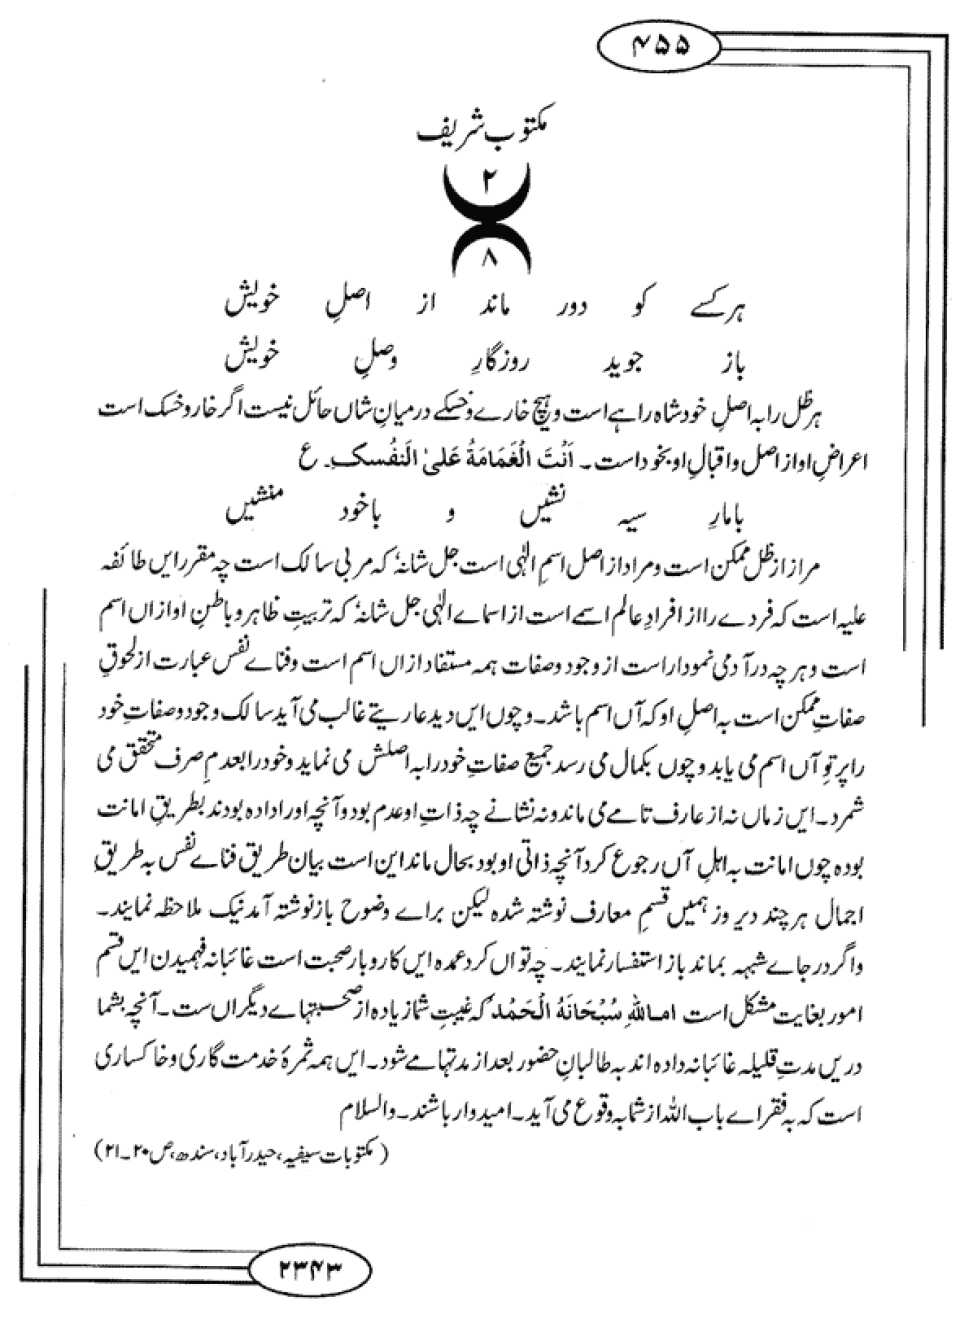 ۴۵۵
مکتوب شریف
۲
۸
ہر کسے کو دور ماند از اصلِ خویش
باز جوید روزگارِ وصلِ خویش
ہر ظل را بہ اصلِ خود شاہ راہے است و ہیچ خارے و خسکے درمیانِ شاں حائل نیست اگر خار و خسک است
اعراضِ او از اصل و اقبالِ او بخود است۔ اَنْتَ الْغَمَامَةُ عَلیٰ الَنفُسکِ۔ ع
با مارِ سیہ نشیں و با خود منشیں
مراز از ظل ممکن است و مراد از اصل اسمِ الٰہی است جل شانہٗ کہ مربی سالک است چہ مقرر ایں طائفہ
علیہ است کہ فردے را از افرادِ عالم اسمے است از اسماے الٰہی جل شانہٗ کہ تربیتِ ظاہر و باطنِ او ازاں اسم
است و ہر چہ در آدمی نمودار است از وجود و صفات ہمہ مستفاد ازاں اسم است و فناے نفس عبارت از لحوقِ
صفاتِ ممکن است بہ اصلِ او کہ آں اسم باشد۔ و چوں ایں دید عاریتے غالب می آید سالک وجود و صفاتِ خود
را پرتوِ آں اسم می یابد و چوں بکمال می رسد جمیع صفاتِ خود را بہ اصلش می نماید و خود را بعدمِ صرف متحقق می
شمرد۔ ایں زماں نہ از عارف نامے می ماند و نہ نشانے چہ ذاتِ او عدم بود و آنچہ او را دادہ بودند بطریقِ امانت
بودہ چوں امانت بہ اہلِ آں رجوع کرد آنچہ ذاتی او بود بحال ماند این است بیان طریق فناے نفس بہ طریقِ
اجمال ہر چند دیروز ہمیں قسمِ معارف نوشتہ شدہ لیکن براے وضوح باز نوشتہ آمد نیک ملاحظہ نمایند۔
و اگر در جاے شبہہ بماند باز استفسار نمایند۔ چہ تواں کرد عمدہ ایں کاروبار صحبت است غائبانہ فہمیدن ایں قسم
امور بغایت مشکل است اما للہِ سُبْحَانَهُ الْحَمْدُ کہ غیبتِ شما زیادہ از صحبتہاے دیگراں ست۔ آنچہ بشما
دریں مدتِ قلیلہ غائبانہ دادہ اند بہ طالبانِ حضور بعد از مدتہا مے شود۔ ایں ہمہ ثمرۂ خدمت گاری و خاکساری
است کہ بہ فقراے باب اللہ از شما بہ وقوع می آید۔ امیدوار باشند۔ والسلام
(مکتوبات سیفیہ، حیدرآباد، سندھ، ص ۲۰۔۲۱)
۲۳۴۳